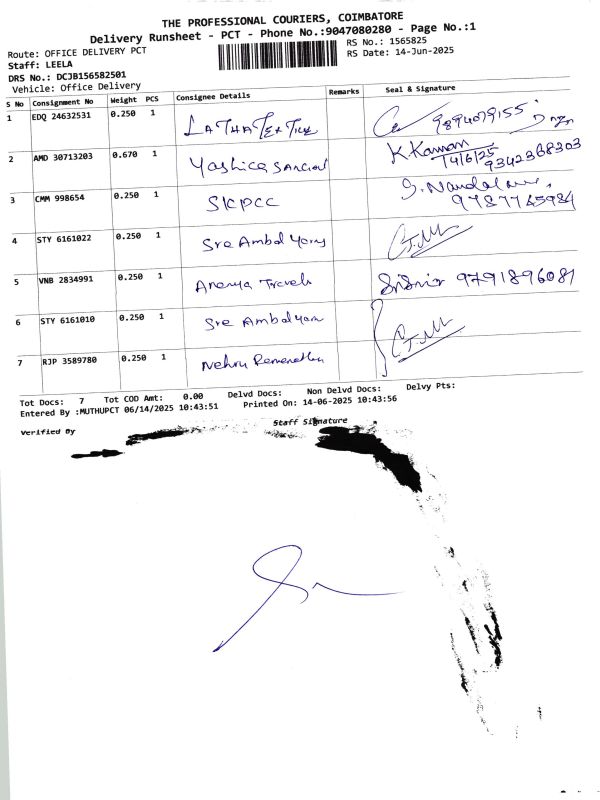 THE PROFESSIONAL COURIERS, COIMBATORE
Delivery Runsheet - PCT - Phone No.:9047080280 - Page No.:1
Route: OFFICE DELIVERY PCT
RS No.: 1565825
Staff: LEELA
RS Date: 14-Jun-2025
DRS No.: DCJB156582501
Vehicle: Office Delivery
S No Consignment No Weight PCS Consignee Details Remarks Seal & Signature
1 EDQ 24632531 0.250 1 LATHA TEXTILE 9894079155
2 AMD 30713203 0.670 1 Yashica K.Kannan 14/6/25 9342368303
3 CMM 998654 0.250 1 SKPCC 9787765984
4 STY 6161022 0.250 1 Sre Ambal Yarns
5 VNB 2834991 0.250 1 Ananya Travels 9791896081
6 STY 6161010 0.250 1 Sre Ambal Yarn
7 RJP 3589780 0.250 1 Nehru
Tot Docs: 7 Tot COD Amt: 0.00 Delvd Docs: Non Delvd Docs: Delvy Pts:
Entered By :MUTHUPCT 06/14/2025 10:43:51 Printed On: 14-06-2025 10:43:56
Verified By Staff Signature